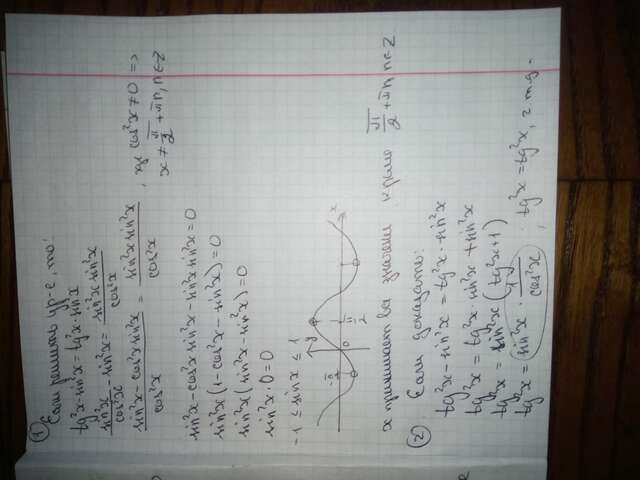 ① Если решить ур-е, то:
tg²x - sin²x = tg²x · sin²x
sin²x/cos²x - sin²x = sin²x sin²x/cos²x
sin²x - cos²x sin²x/cos²x = sin²x sin²x/cos²x, где cos²x ≠ 0 =>
x ≠ π/2 + πn, n∈Z
sin²x - cos²x sin²x - sin²x sin²x = 0
sin²x (1 - cos²x - sin²x) = 0
sin²x (sin²x - sin²x) = 0
sin²x · 0 = 0
-1 ≤ sin x ≤ 1
y
x
-π/2 0 1 π/2
x принимает все значения кроме π/2 + πn, n∈Z
② Если доказать:
tg²x - sin²x = tg²x · sin²x
tg²x = tg²x · sin²x + sin²x
tg²x = sin²x (tg²x + 1)
tg²x = sin²x · 1/cos²x, tg²x = tg²x, ч.т.д.